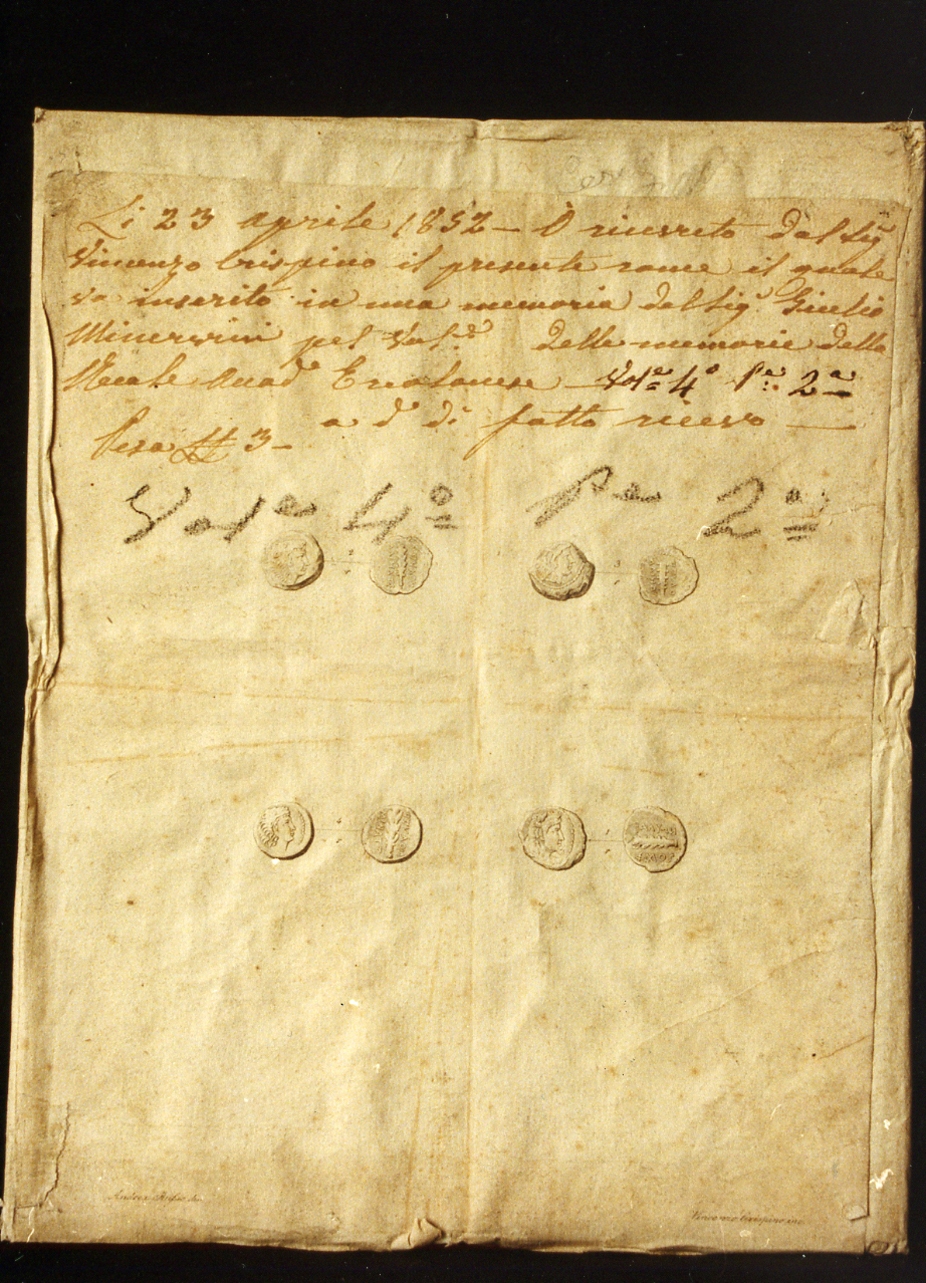 Li 23 aprile 1852 – Ò ricevuto dal Sigr
Vincenzo Crispino il presente rame il quale
va inserito in una memoria del Sigr Giulio
Minervini pel Vole delle memorie della
Reale Accad. Ercolanese – Vole 4o Pe 2a
a di fatto ricevo
Pesa 3 –
Vole 4o Pe 2a
Vincenzo Crispino inc.